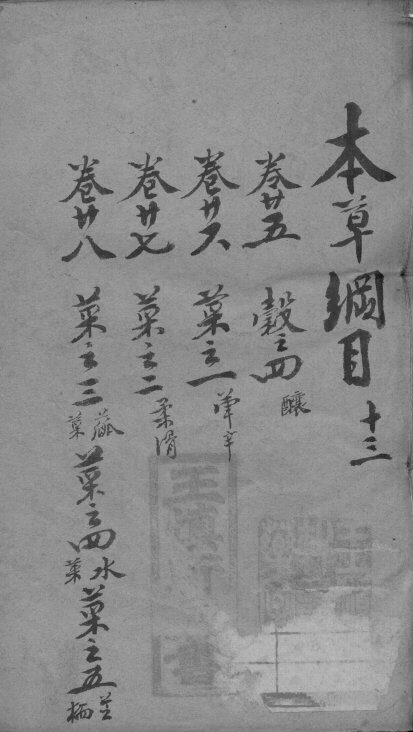 本草綱目 十三
卷廿五 穀之四 釀
卷廿六 菜之一 葷辛
卷廿七 菜之二 柔滑
卷廿八 菜之三 蓏菜 菜之四 水菜 菜之五 芝栭